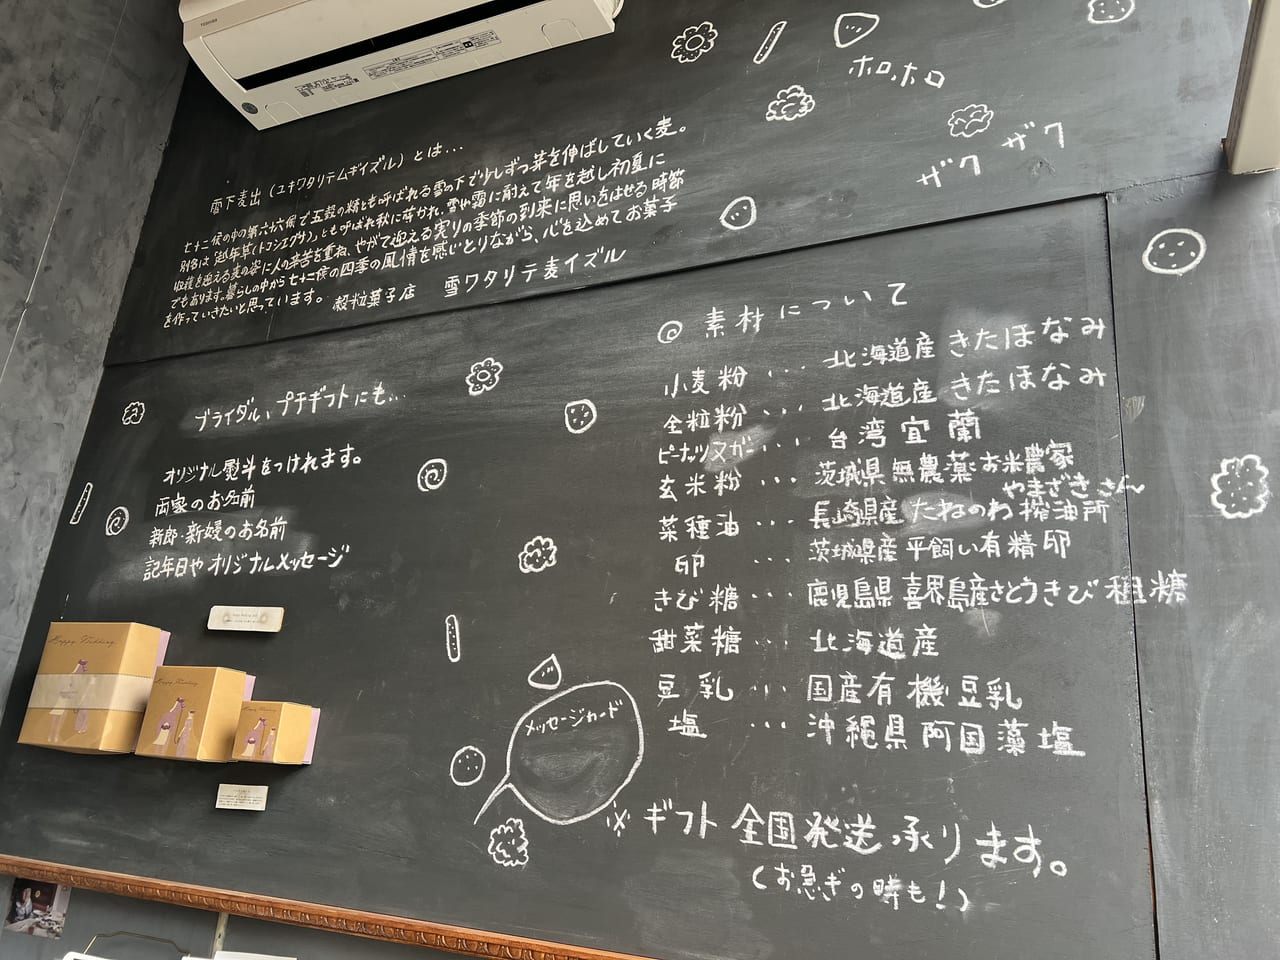 TOSHIBA
ホロホロ
ザク ザク
雪下麦出(ユキワタリテムギイズル)とは...
七十二候の中の第六十六候で五穀の精とも呼ばれる雪の下で少しずつ芽を伸ばしていく麦。
別名は「越年草(トコシエグサ)」とも呼ばれ秋に蒔かれ、雪や霜に耐えて年を越し初夏に
収穫を迎える麦の姿に人の辛苦を重ね、やがて迎える実りの季節の到来に思いをはせる時節
でもあります。暮らしの中から七十二候の四季の風情を感じとりながら、心を込めてお菓子
を作っていきたいと思っています。 穀粒菓子店 雪ワタリテ麦イズル
素材について
小麦粉 ... 北海道産 きたほなみ
全粒粉 ... 北海道産 きたほなみ
ピーナッツヌガー ... 台湾宜蘭
玄米粉 ... 茨城県 無農薬 お米農家
やまざきさん
菜種油 ... 長崎県産 たねのわ搾油所
卵 ... 茨城県産 平飼い有精卵
きび糖 ... 鹿児島県 喜界島産さとうきび粗糖
甜菜糖 ... 北海道産
豆乳 ... 国産有機豆乳
塩 ... 沖縄県 阿国藻塩
※ ギフト 全国発送 承ります。
(お急ぎの時も!)
ブライダル、プチギフトにも...
オリジナル熨斗をつけれます。
両家のお名前
新郎・新婦のお名前
記年日やオリジナルメッセージ
メッセージカード
Happy Wedding
Happy Wedding
Happy Wedding